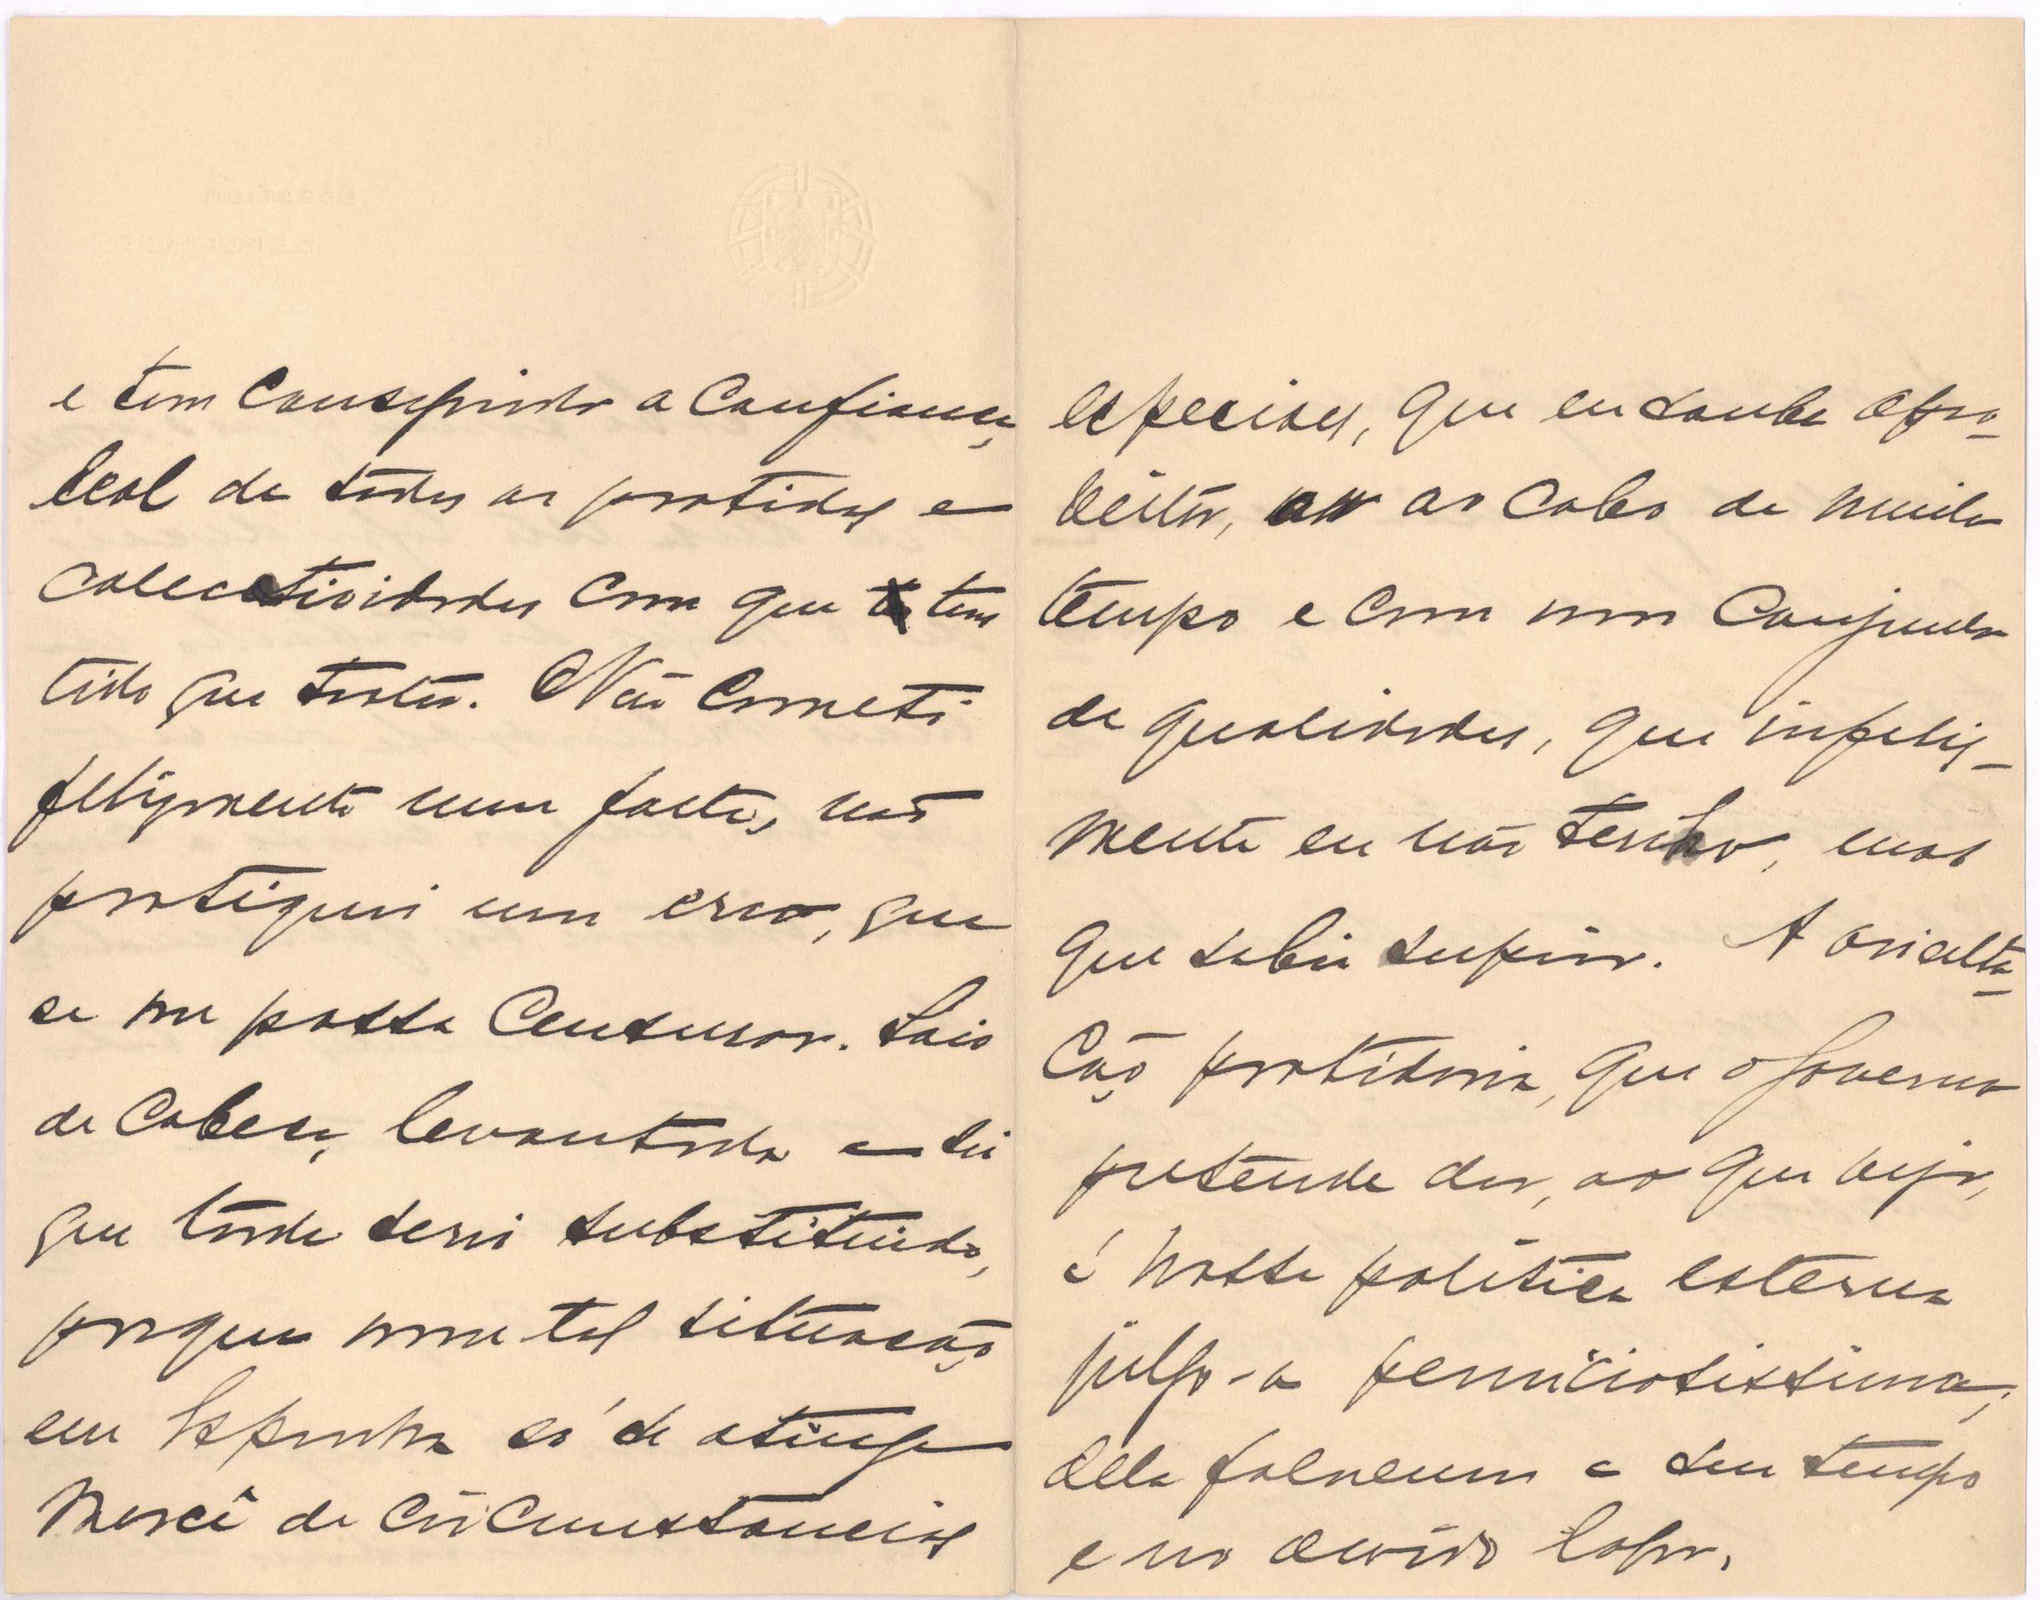 e tem conseguido a confiança
leal de todos os partidos e
colectividades com que tem
tido que tratar. Não cometi
felizmente uma falta, não
pratiquei um erro, que
se me possa censurar. Saio
de cabeça levantada e sei
que tarde serei substituido,
porque numa tal situação
em Espanha só se atinge
mercê de circunstancias
especiaes, que eu soube apro-
veitar, ao cabo de muito
tempo e com um conjunto
de qualidades, que infeliz-
mente eu não tenho, mas
que sabia supor. A orienta-
ção partidaria, que o Governo
pretende dar, ao que vejo,
á nossa politica externa
julgo-a perniciosissima;
della falaremos a seu tempo
e no devido logar.